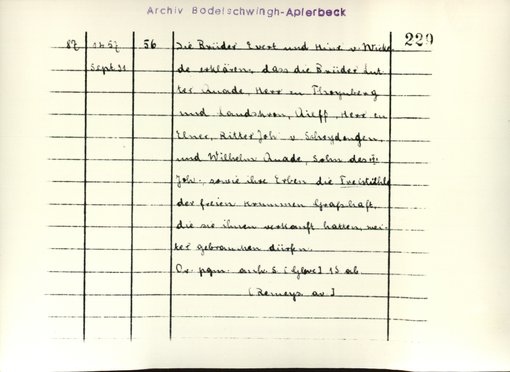 Archiv Bodelschwingh-Aplerbeck
229
87 1457 56 Die Brüder Evert und Hinr. v. Wicke
Sept. 21 de erklären, dass die Brüder Lut
ter Quade, Herr zu Thoynberg
und Landskron, Aileff, Herr zu
Elner, Ritter Joh. v. Scheydongen,
und Wilhelm Quade, Sohn des
Joh., sowie ihre Erben die Freistühle
der freien Krummen Grafschaft,
die sie ihnen verkauft hatten, wei
ter gebrauchen dürfen.
Or. pgm. anh. S. 15 ab.